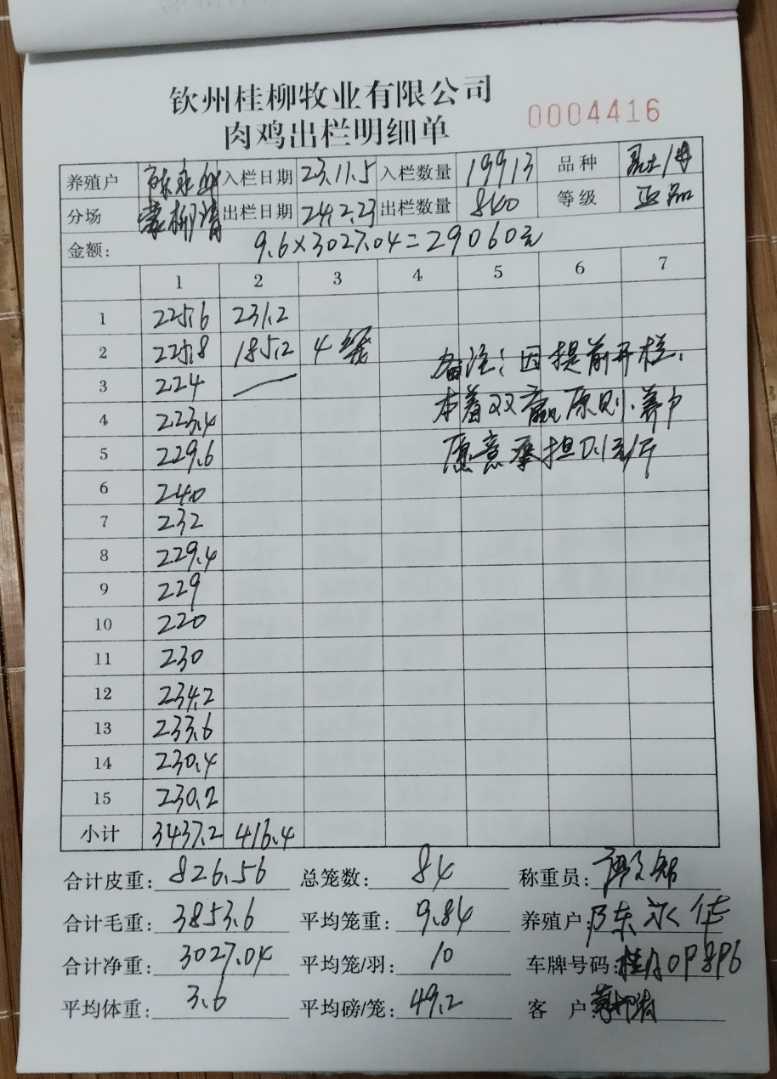 钦州桂柳牧业有限公司
肉鸡出栏明细单 0004416
养殖户 入栏日期 23.11.5 入栏数量 19913 品种
分场 出栏日期 24.2.23 出栏数量 840 等级 正品
金额: 9.6×3027.04=29060元
1 2 3 4 5 6 7
1 225.6 231.2
2 225.8 185.2 4笼
3 224
4 223.4
5 229.6
6 240
7 232
8 229.4
9 229
10 220
11 230
12 234.2
13 233.6
14 230.4
15 230.2
备注:因提前开栏,
本着双赢原则,养户
愿意承担0.1元/斤
小计 3437.2 416.4
合计皮重: 826.56 总笼数: 84 称重员:
合计毛重: 3853.6 平均笼重: 9.84 养殖户: 陈永
合计净重: 3027.04 平均笼/羽: 10 车牌号码:
平均体重: 3.6 平均磅/笼: 49.2 客户